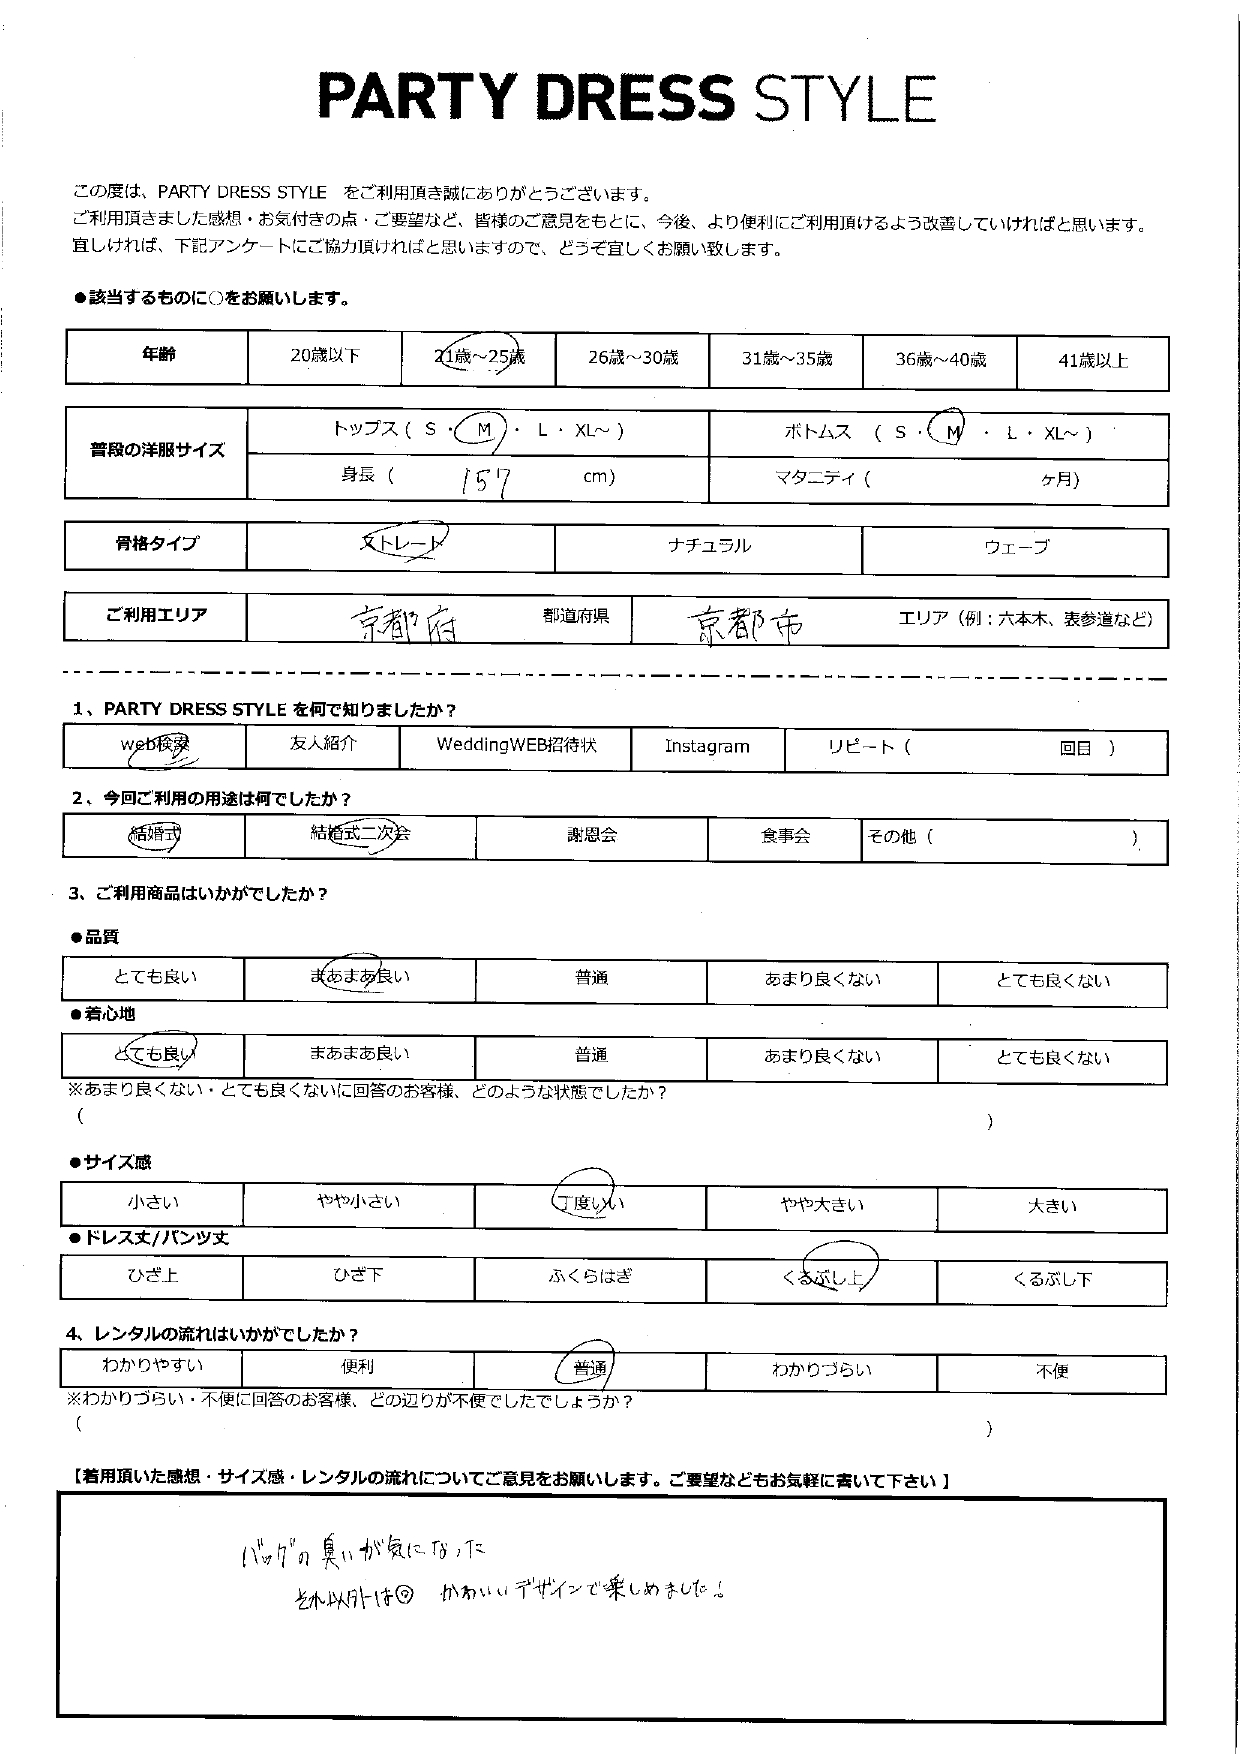 PARTY DRESS STYLE
この度は、PARTY DRESS STYLE をご利用頂き誠にありがとうございます。
ご利用頂きました感想・お気付きの点・ご要望など、皆様のご意見をもとに、今後、より便利にご利用頂けるよう改善していければと思います。
宜しければ、下記アンケートにご協力頂ければと思いますので、どうぞ宜しくお願い致します。
●該当するものに○をお願いします。
年齢 20歳以下 21歳～25歳 26歳～30歳 31歳～35歳 36歳～40歳 41歳以上
普段の洋服サイズ トップス ( S ・ M ・ L ・ XL～ ) ボトムス ( S ・ M ・ L ・ XL～ )
身長 ( 157 cm) マタニティ ( ヶ月)
骨格タイプ ストレート ナチュラル ウェーブ
ご利用エリア 京都府 都道府県 京都市 エリア（例：六本木、表参道など）
1、PARTY DRESS STYLE を何で知りましたか？
web検索 友人紹介 WeddingWEB招待状 Instagram リピート ( 回目 )
2、今回ご利用の用途は何でしたか？
結婚式 結婚式二次会 謝恩会 食事会 その他 ( )
3、ご利用商品はいかがでしたか？
●品質
とても良い まあまあ良い 普通 あまり良くない とても良くない
●着心地
とても良い まあまあ良い 普通 あまり良くない とても良くない
※あまり良くない・とても良くないに回答のお客様、どのような状態でしたか？
( )
●サイズ感
小さい やや小さい 丁度いい やや大きい 大きい
●ドレス丈/パンツ丈
ひざ上 ひざ下 ふくらはぎ くるぶし上 くるぶし下
4、レンタルの流れはいかがでしたか？
わかりやすい 便利 普通 わかりづらい 不便
※わかりづらい・不便に回答のお客様、どの辺りが不便でしたでしょうか？
( )
【着用頂いた感想・サイズ感・レンタルの流れについてご意見をお願いします。ご要望などもお気軽に書いて下さい 】
バッグの臭いが気になった
それ以外は◎ かわいいデザインで楽しめました！